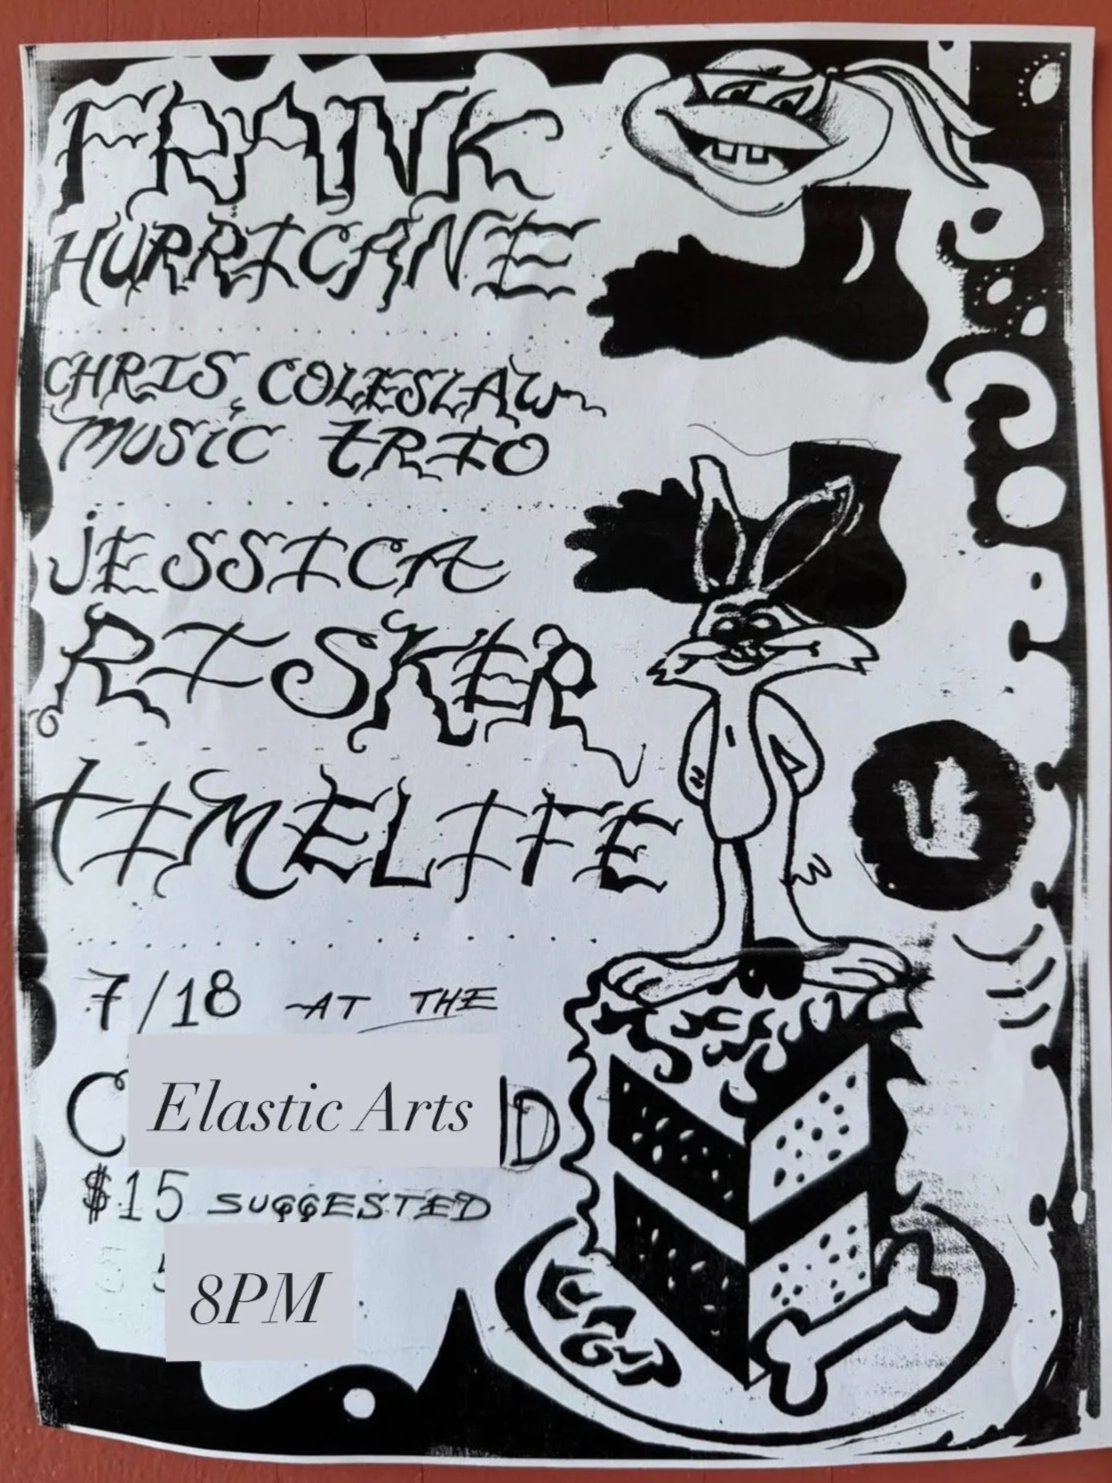 FRANK
HURRICANE
CHRIS COLESLAW
MUSIC TRIO
JESSICA
RISKER
TIMELIFE
7/18 AT THE
Elastic Arts
$15 SUGGESTED
8PM